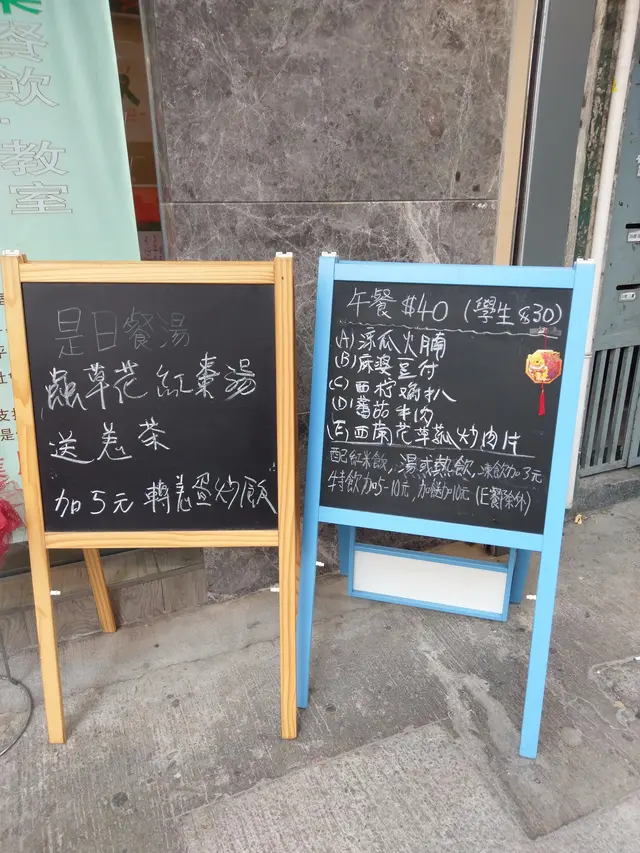 餐飲·教室
是日餐湯
蟲草花紅棗湯
送羗茶
加5元轉羗蛋炒飯
午餐 $40 (學生$30)
(A) 涼瓜火腩
(B) 麻婆豆付
(C) 西柠鸡扒
(D) 蕃茄牛肉
(E) 西兰花草菰炒肉片
配紅米飯, 湯或熱飲, 凍飲加3元
特飲加5-10元, 加餸加10元 (E餐除外)